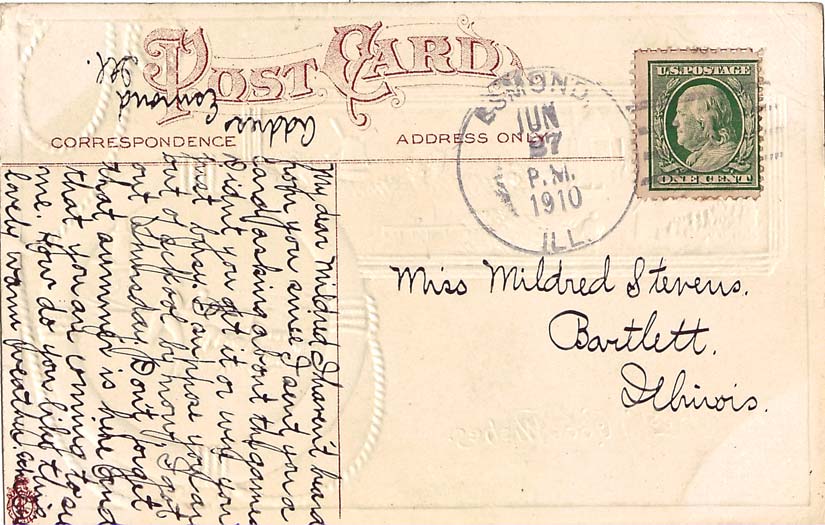 POST CARD
Address Esmond
Ill.
CORRESPONDENCE
ADDRESS ONLY
ESMOND,
JUN
27
P.M.
1910
ILL.
U.S. POSTAGE
ONE CENT
Miss Mildred Stevens.
Bartlett.
Illinois.
My dear Mildred I haven't heard
from you since I sent you a
card asking about the games
Didn't you get it or were you
just busy. I suppose you are
out of school by now. I got
out Thursday. Don't forget
that summer is here and
that you are coming to see
me. How do you like this
lovely warm weather